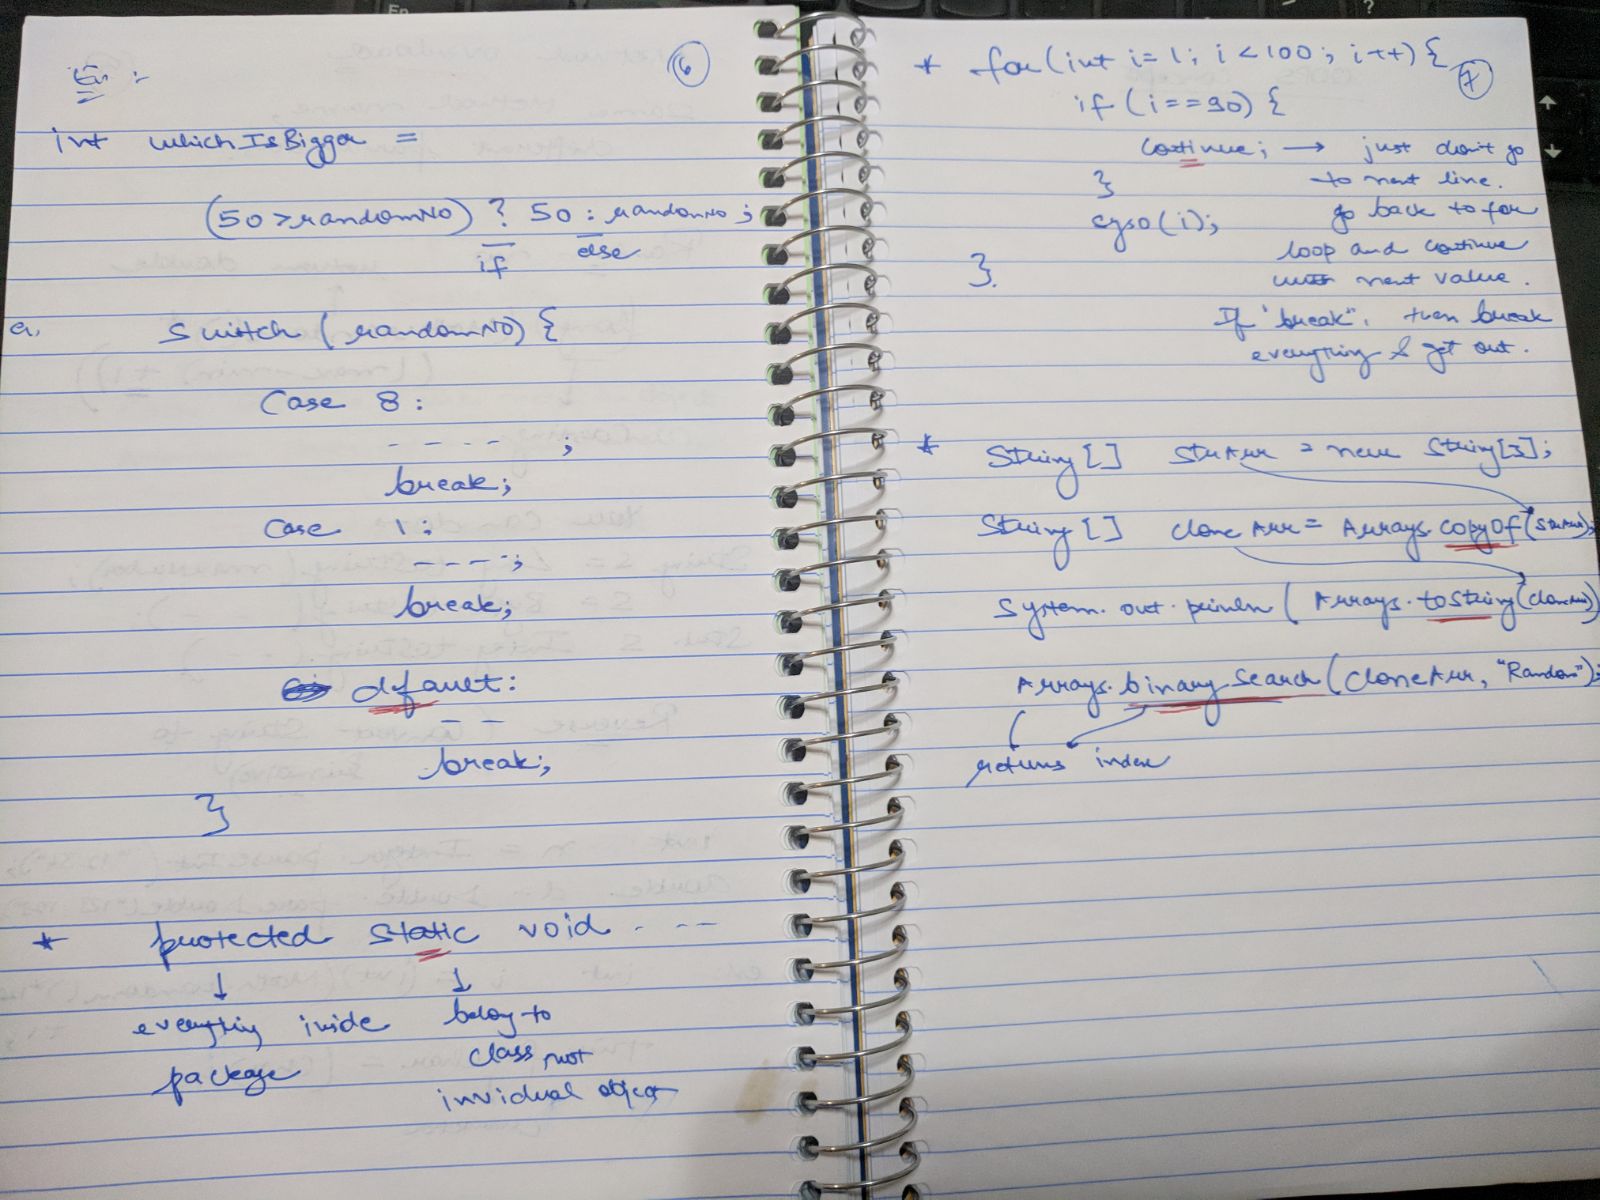 Ex :-
6
int whichIsBigger =
(50 > randomNO) ? 50 : randomNO ;
if else
a. switch (randomNO) {
Case 8 :
- - - - ;
break;
Case 1 :
- - - - ;
break;
dfault:
- -
break;
}
* protected static void . - --
↓ ↓
everything inside belong to
package class not
invidual object
* for (int i = 1; i < 100; i++) {
7
if (i == 90) {
continue; → just don't go
} to next line.
syso(i); go back to for
} loop and continue
with next value.
If "break", then break
everything & get out.
* String [] strArr = new String[5];
String [] cloneArr = Arrays.copyOf(strArr);
System.out.println (Arrays.toString(cloneArr)
Arrays.binarySearch(cloneArr, "Random");
returns index